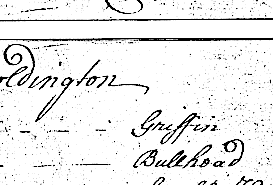 oldington
Griffin
Bullhead